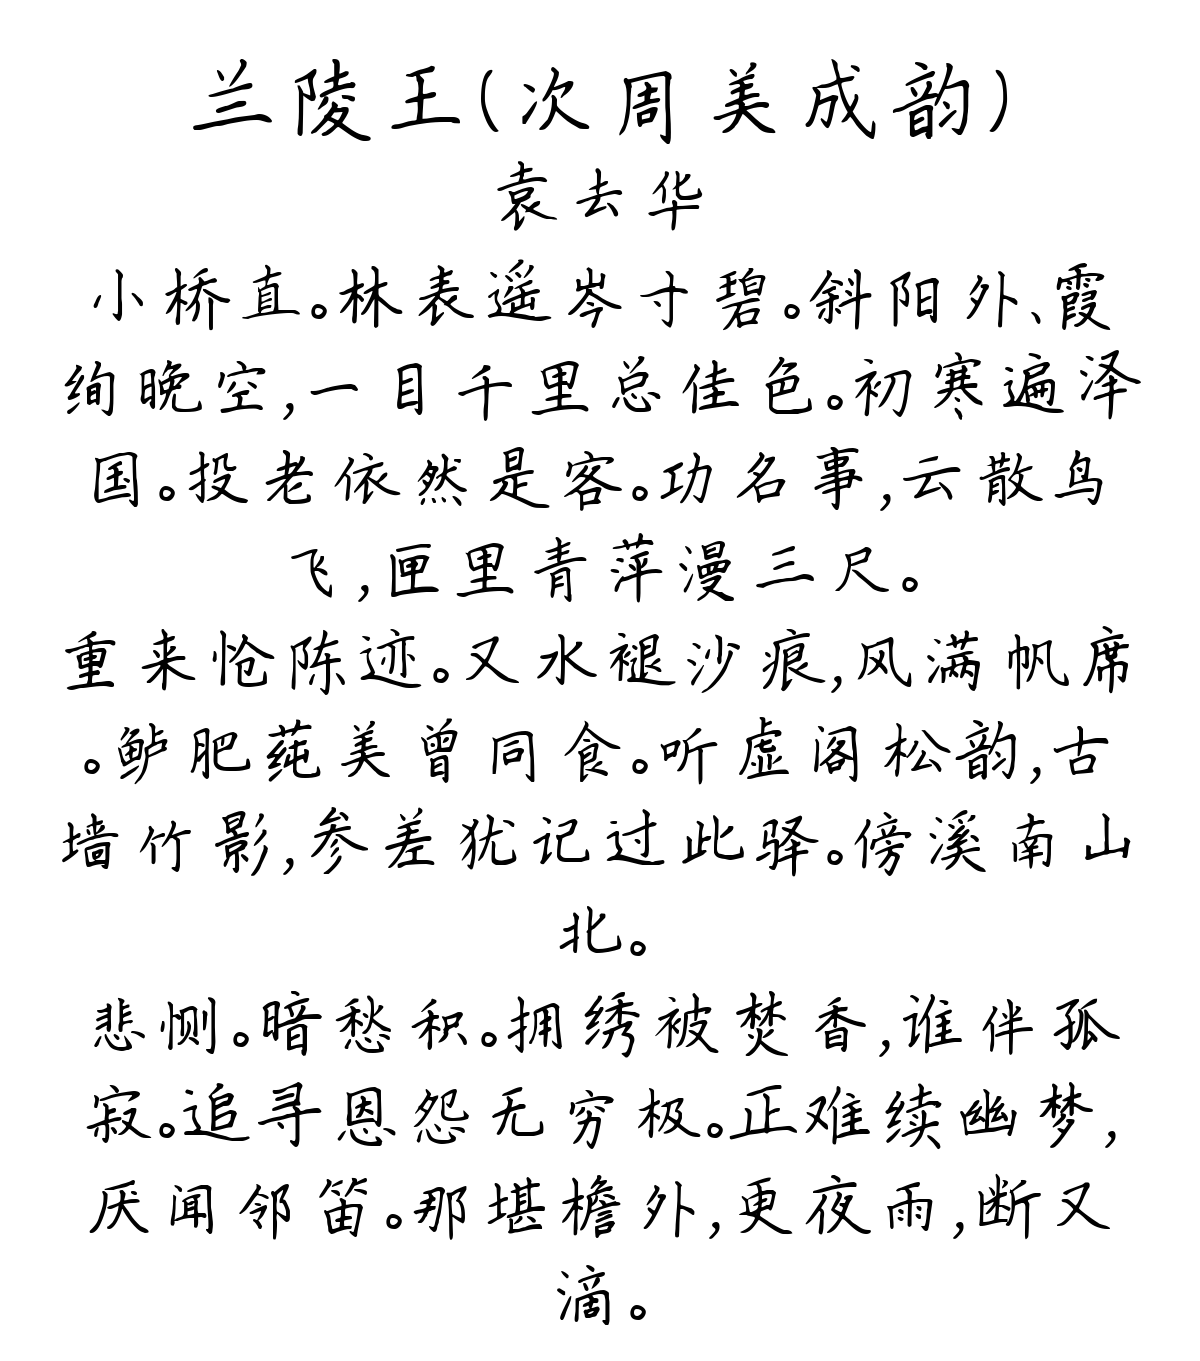 兰陵王(次周美成韵)
袁去华
小桥直。林表遥岑寸碧。斜阳外、霞
绚晚空,一目千里总佳色。初寒遍泽
国。投老依然是客。功名事,云散鸟
飞,匣里青萍漫三尺。
重来怆陈迹。又水褪沙痕,风满帆席
。鲈肥莼美曾同食。听虚阁松韵,古
墙竹影,参差犹记过此驿。傍溪南山
北。
悲恻。暗愁积。拥绣被焚香,谁伴孤
寂。追寻恩怨无穷极。正难续幽梦,
厌闻邻笛。那堪檐外,更夜雨,断又
滴。